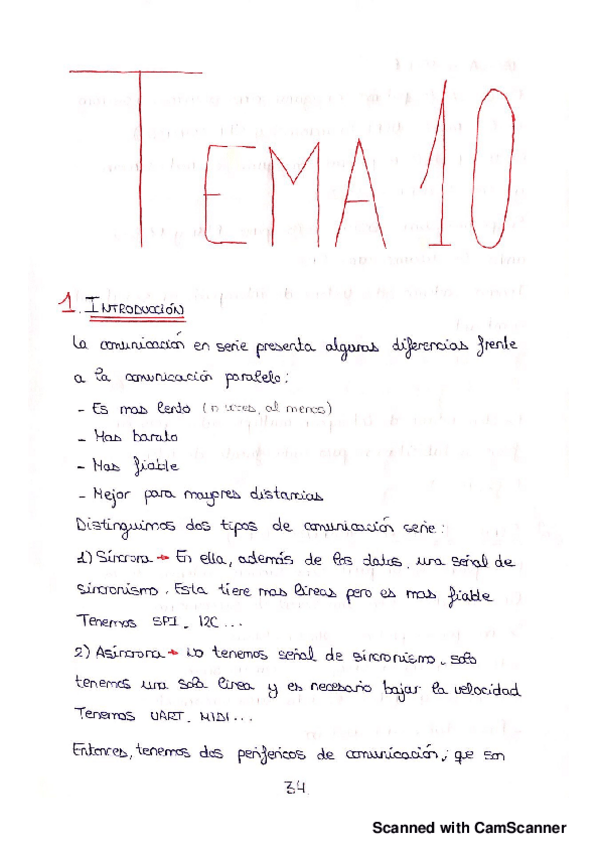 TEMA 10
1. INTRODUCCIÓN
La comunicación en serie presenta algunas diferencias frente
a la comunicación paralelo:
- Es mas lento (n veces, al menos)
- Mas barato
- Mas fiable
- Mejor para mayores distancias
Distinguimos dos tipos de comunicación serie:
1) Síncrona → En ella, además de los datos, una señal de
sincronismo. Esta tiene mas líneas pero es mas fiable
Tenemos SPI, I2C...
2) Asíncrona → No tenemos señal de sincronismo, solo
tenemos una sola línea y es necesario bajar la velocidad
Tenemos UART, MIDI...
Entonces, tenemos dos perifericos de comunicación, que son
34
Scanned with CamScanner